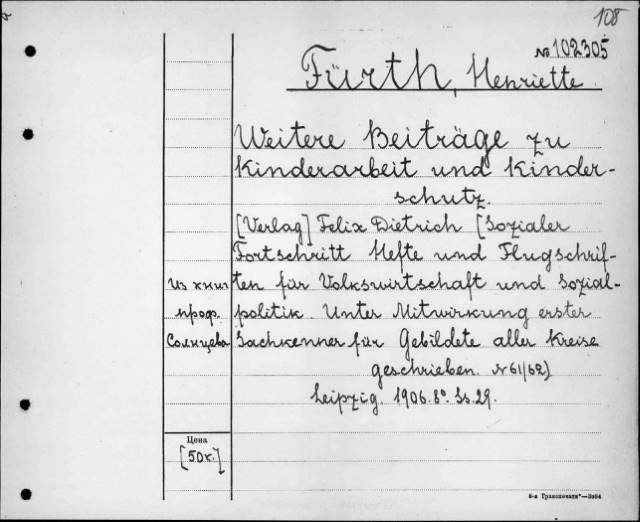 108
№ 102305
Fürth, Henriette
Weitere Beiträge zu
Kinderarbeit und Kinder-
schutz.
[Verlag] Felix Dietrich [Sozialer
Fortschritt Hefte und Flugschrif-
Из книг
ten für Volkswirtschaft und Sozial-
проф.
politik. Unter Mitwirkung erster
Солнцева
Sachkenner für Gebildete aller Kreise
geschrieben. N 61/62)
Leipzig. 1906. 8º. Ss. 29.
Цена
[50к.]